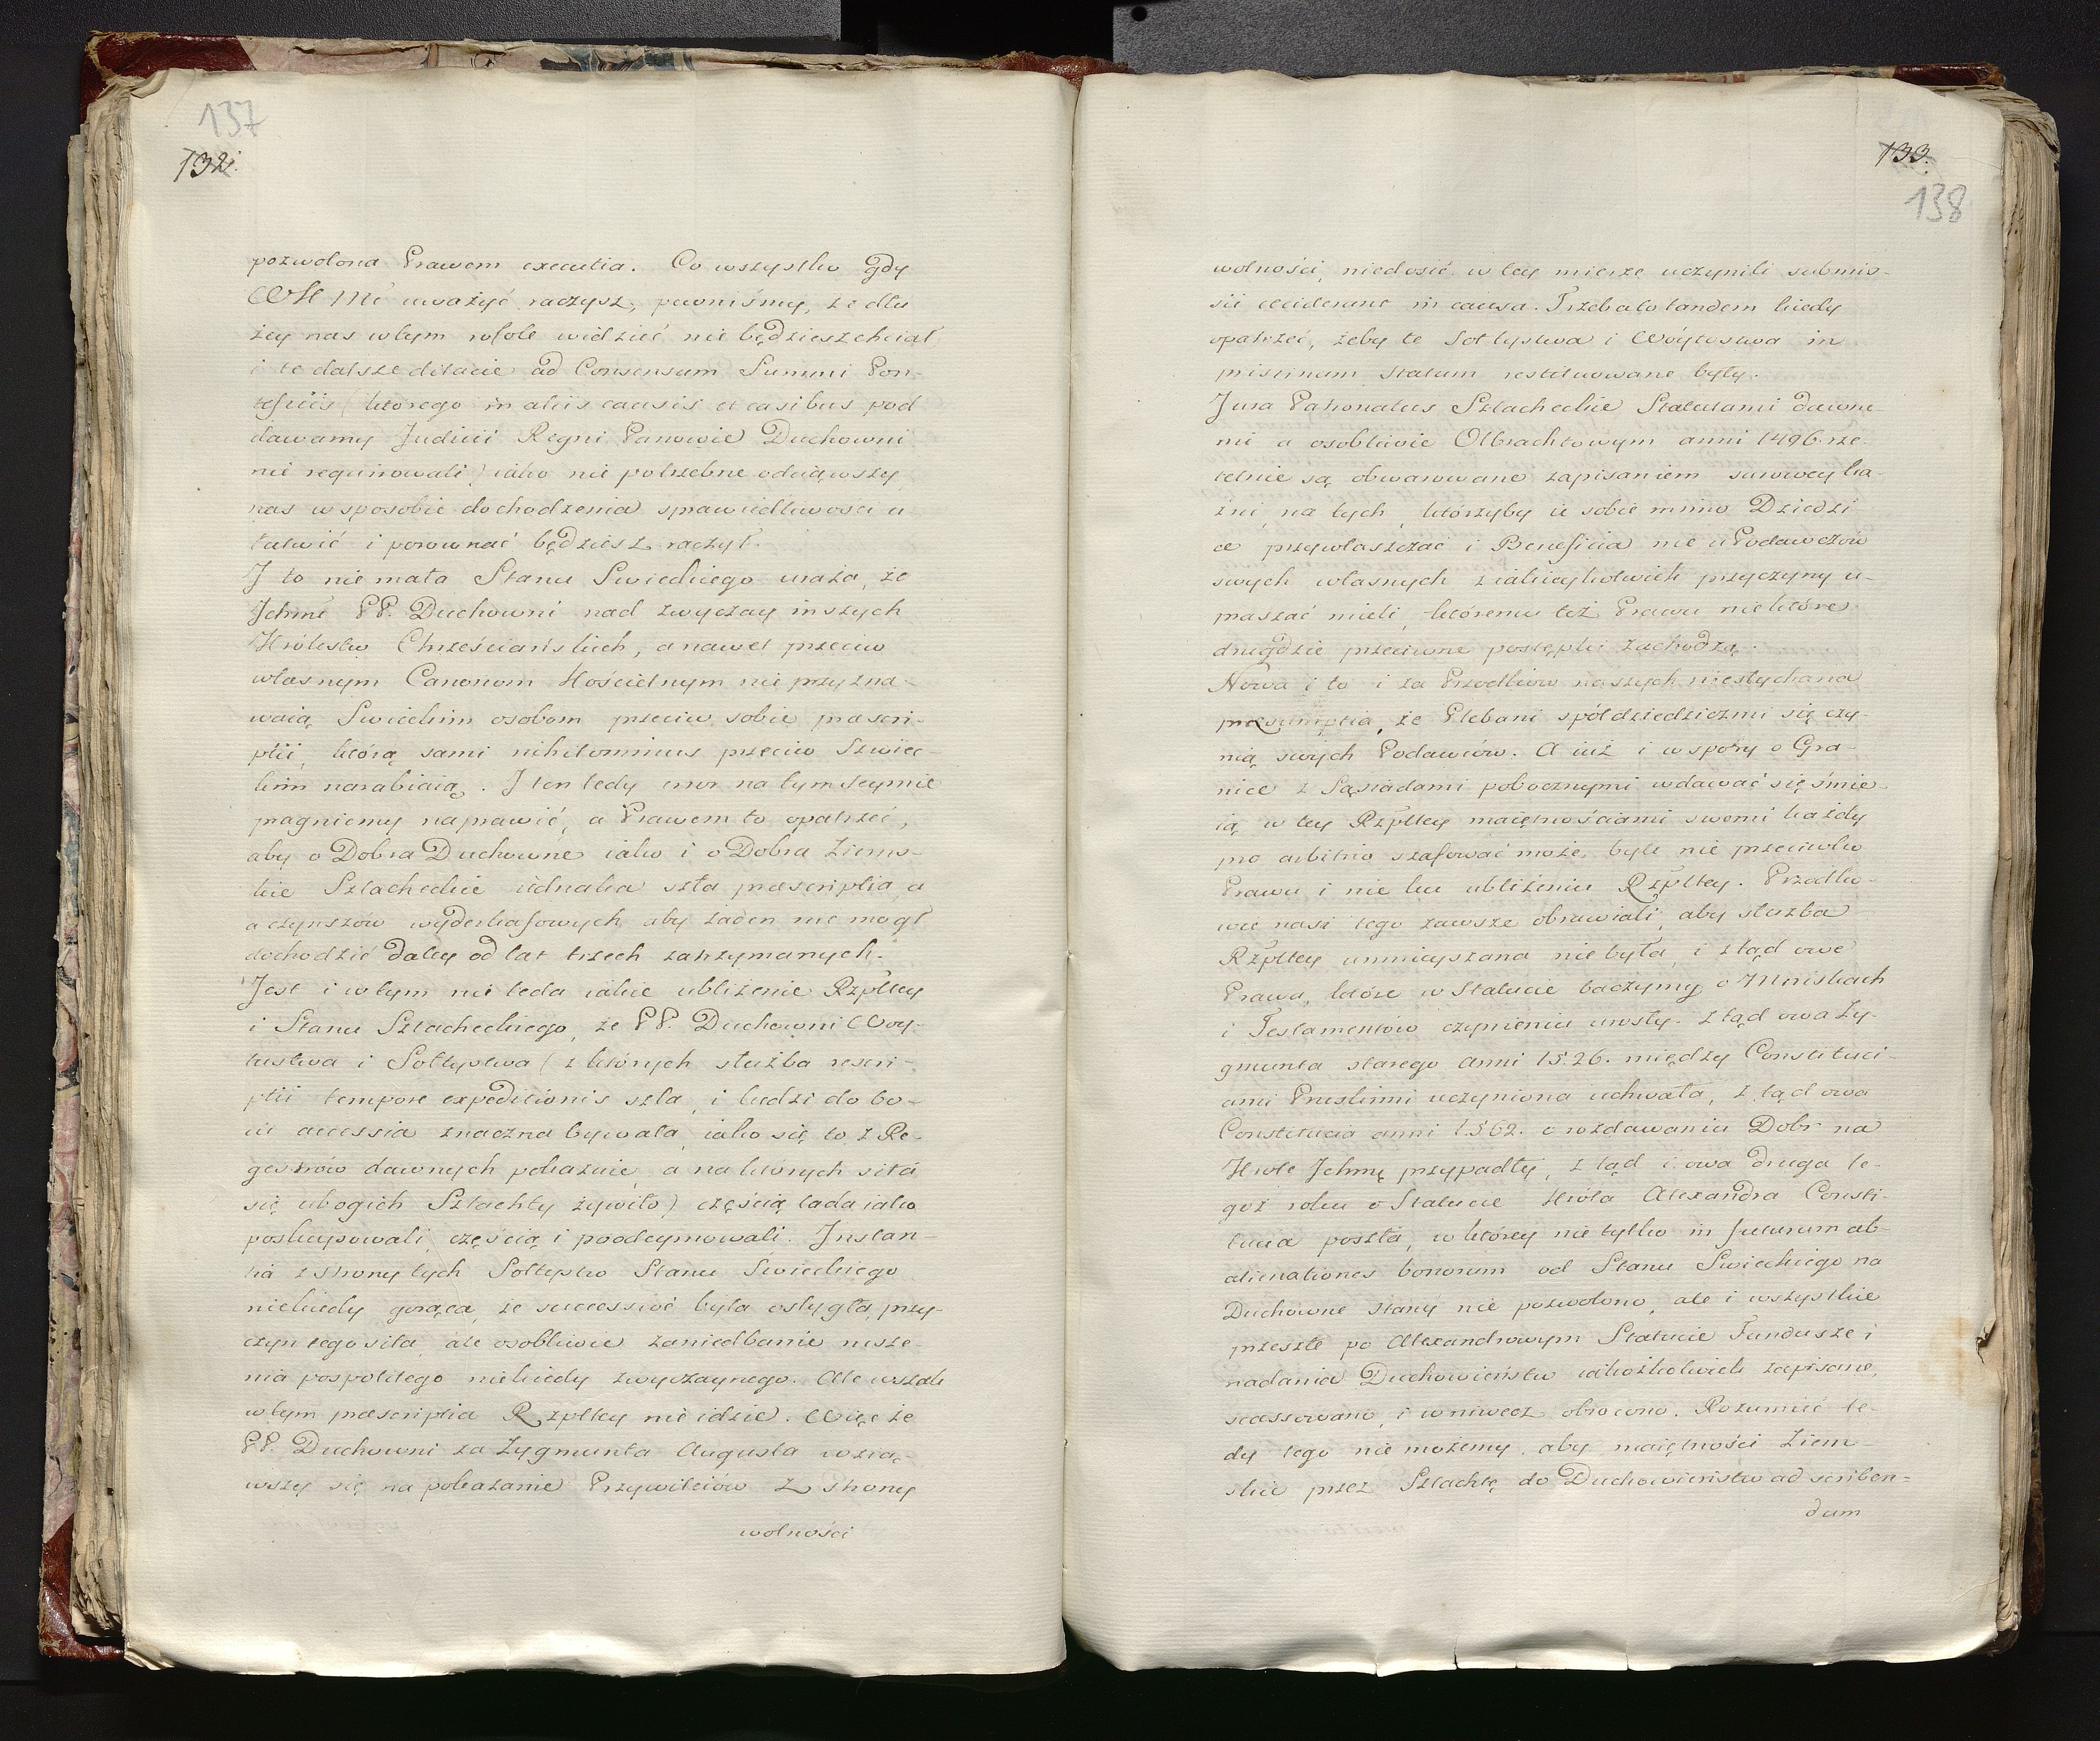 137
132.
pozwolona Prawem executia. Co wszystko gdy
WKMć uważyć raczysz, pewniśmy, że dłu
żey nas w tym wole widzieć nie będziesz chciał,
i te dalsze dilacie ad Consensum Summi Pon-
tificis (którego in aliis causis et casibus pod
dawamy Judicii Regni Panowie Duchowni
nie requirowali) iako nie potrzebne odciąwszy
nas w sposobie dochodzenia sprawiedliwości u
łatwić i porownać będziesz raczył.
J to nie mała Stanu Swieckiego uraża, że
Jchmć PP. Duchowni nad zwyczay inszych
Krolestw Chrześciańskich, a nawet przeciw
własnym Canonom Kościelnym nie przyzna-
waią Swieckim osobom przeciw sobie præscri-
ptii, którą sami nihilominus przeciw Swiec-
kim narabiaią. J ten tedy error na tym Seymie
pragniemy naprawić, a Prawem to opatrzeć,
aby o Dobra Duchowne iako i o Dobra Ziems-
kie Szlacheckie iednaka szła præscriptia, a
a czynszów wyderkafowych aby żaden nie mogł
dochodzić daley od lat trzech zatrzymanych.
Jest i w tym nie leda iakie ubliżenie Rzpltey
i Stanu Szlacheckiego, że PP. Duchowni Woy-
tostwa i Sołtystwa (z których służba rescri-
ptii tempore expeditionis szła, i ludzi do bo-
iu accessia znaczna bywała, iako się to z Re-
gestrów dawnych pokazuie, a na których siła
się ubogich Szlachty żywiło) częścią lada iako
poskupowali, częścią i poodeymowali. Jnstan-
tia z strony tych Sołtystw Stanu Swieckiego
niekiedy gorąca, że successive była ostygła, przy-
czyn tego siła, ale osobliwie zaniedbanie rusze-
nia pospolitego niekiedy zwyczaynego. Ale wszak
w tym præscriptia Rzpltey nie idzie. Więc że
PP. Duchowni za Zygmunta Augusta wzią-
wszy się na pokazanie Przywileiów z strony
wolności
133.
138
wolności, niedosić w tey mierze uczynili submis-
sii ceciderunt in causa. Trzeba to tandem kiedy
opatrzeć, żeby te Sołtystwa i Wóytostwa in
pristinum statum restituowane były.
Jura Patronatus Szlacheckie Statutami dawne-
mi a osobliwie Olbrachtowym anni 1496. rze-
telnie są obwarowane zapisaniem surowey ka-
źni na tych, którzyby ie sobie mimo Dziedzi-
ce przywłaszczać i Beneficia nie u Podawców
swych własnych z iakieykolwiek przyczyny u-
praszać mieli, któremu też Prawu niektóre
drugdzie przeciwne postępki zachodzą.
Nowa i to i za Przodków naszych niesłychana
præsumptia, że Plebani spółdziedzicmi się czy-
nią swych Podawców. A iuż i w spory o Gra-
nice z Sąsiadami pobocznymi wdawać się śmie-
ią w tey Rzpltey maiętnościami swemi każdy
pro arbitrio szafować może, byle nie przeciwko
Prawu i nie ku ubliżeniu Rzpltey. Przodko-
wie nasi tego zawsze obrawiali, aby służba
Rzpltey umnieyszana nie była, i ztąd owe
Prawa, które w Statucie baczymy o Mniskach
i Testamentów czynieniu urosły. Ztąd owa Zy-
gmunta starego anni 1526. między Constituci-
ami Pruskimi uczyniona uchwała, ztąd owa
Constitucia anni 1562. o rozdawaniu Dobr na
Krole Jchmę przypadły, ztąd i owa druga te-
goż roku o Statucie Króla Alexandra Consti-
tucia poszła, w którey nie tylko in futurum ab-
alienationes bonorum od Stanu Swieckiego na
Duchowne stany nie pozwolono, ale i wszystkie
przeszłe po Alexandrowym Statucie Fundusze i
nadania Duchowieństwu iakożkolwiek zapisane,
scassowano, i wniwecz obrocono. Rozumieć te-
dy tego nie możemy, aby maiętności Ziem-
skie przez Szlachtę do Duchowieństw ad scriben-
dum